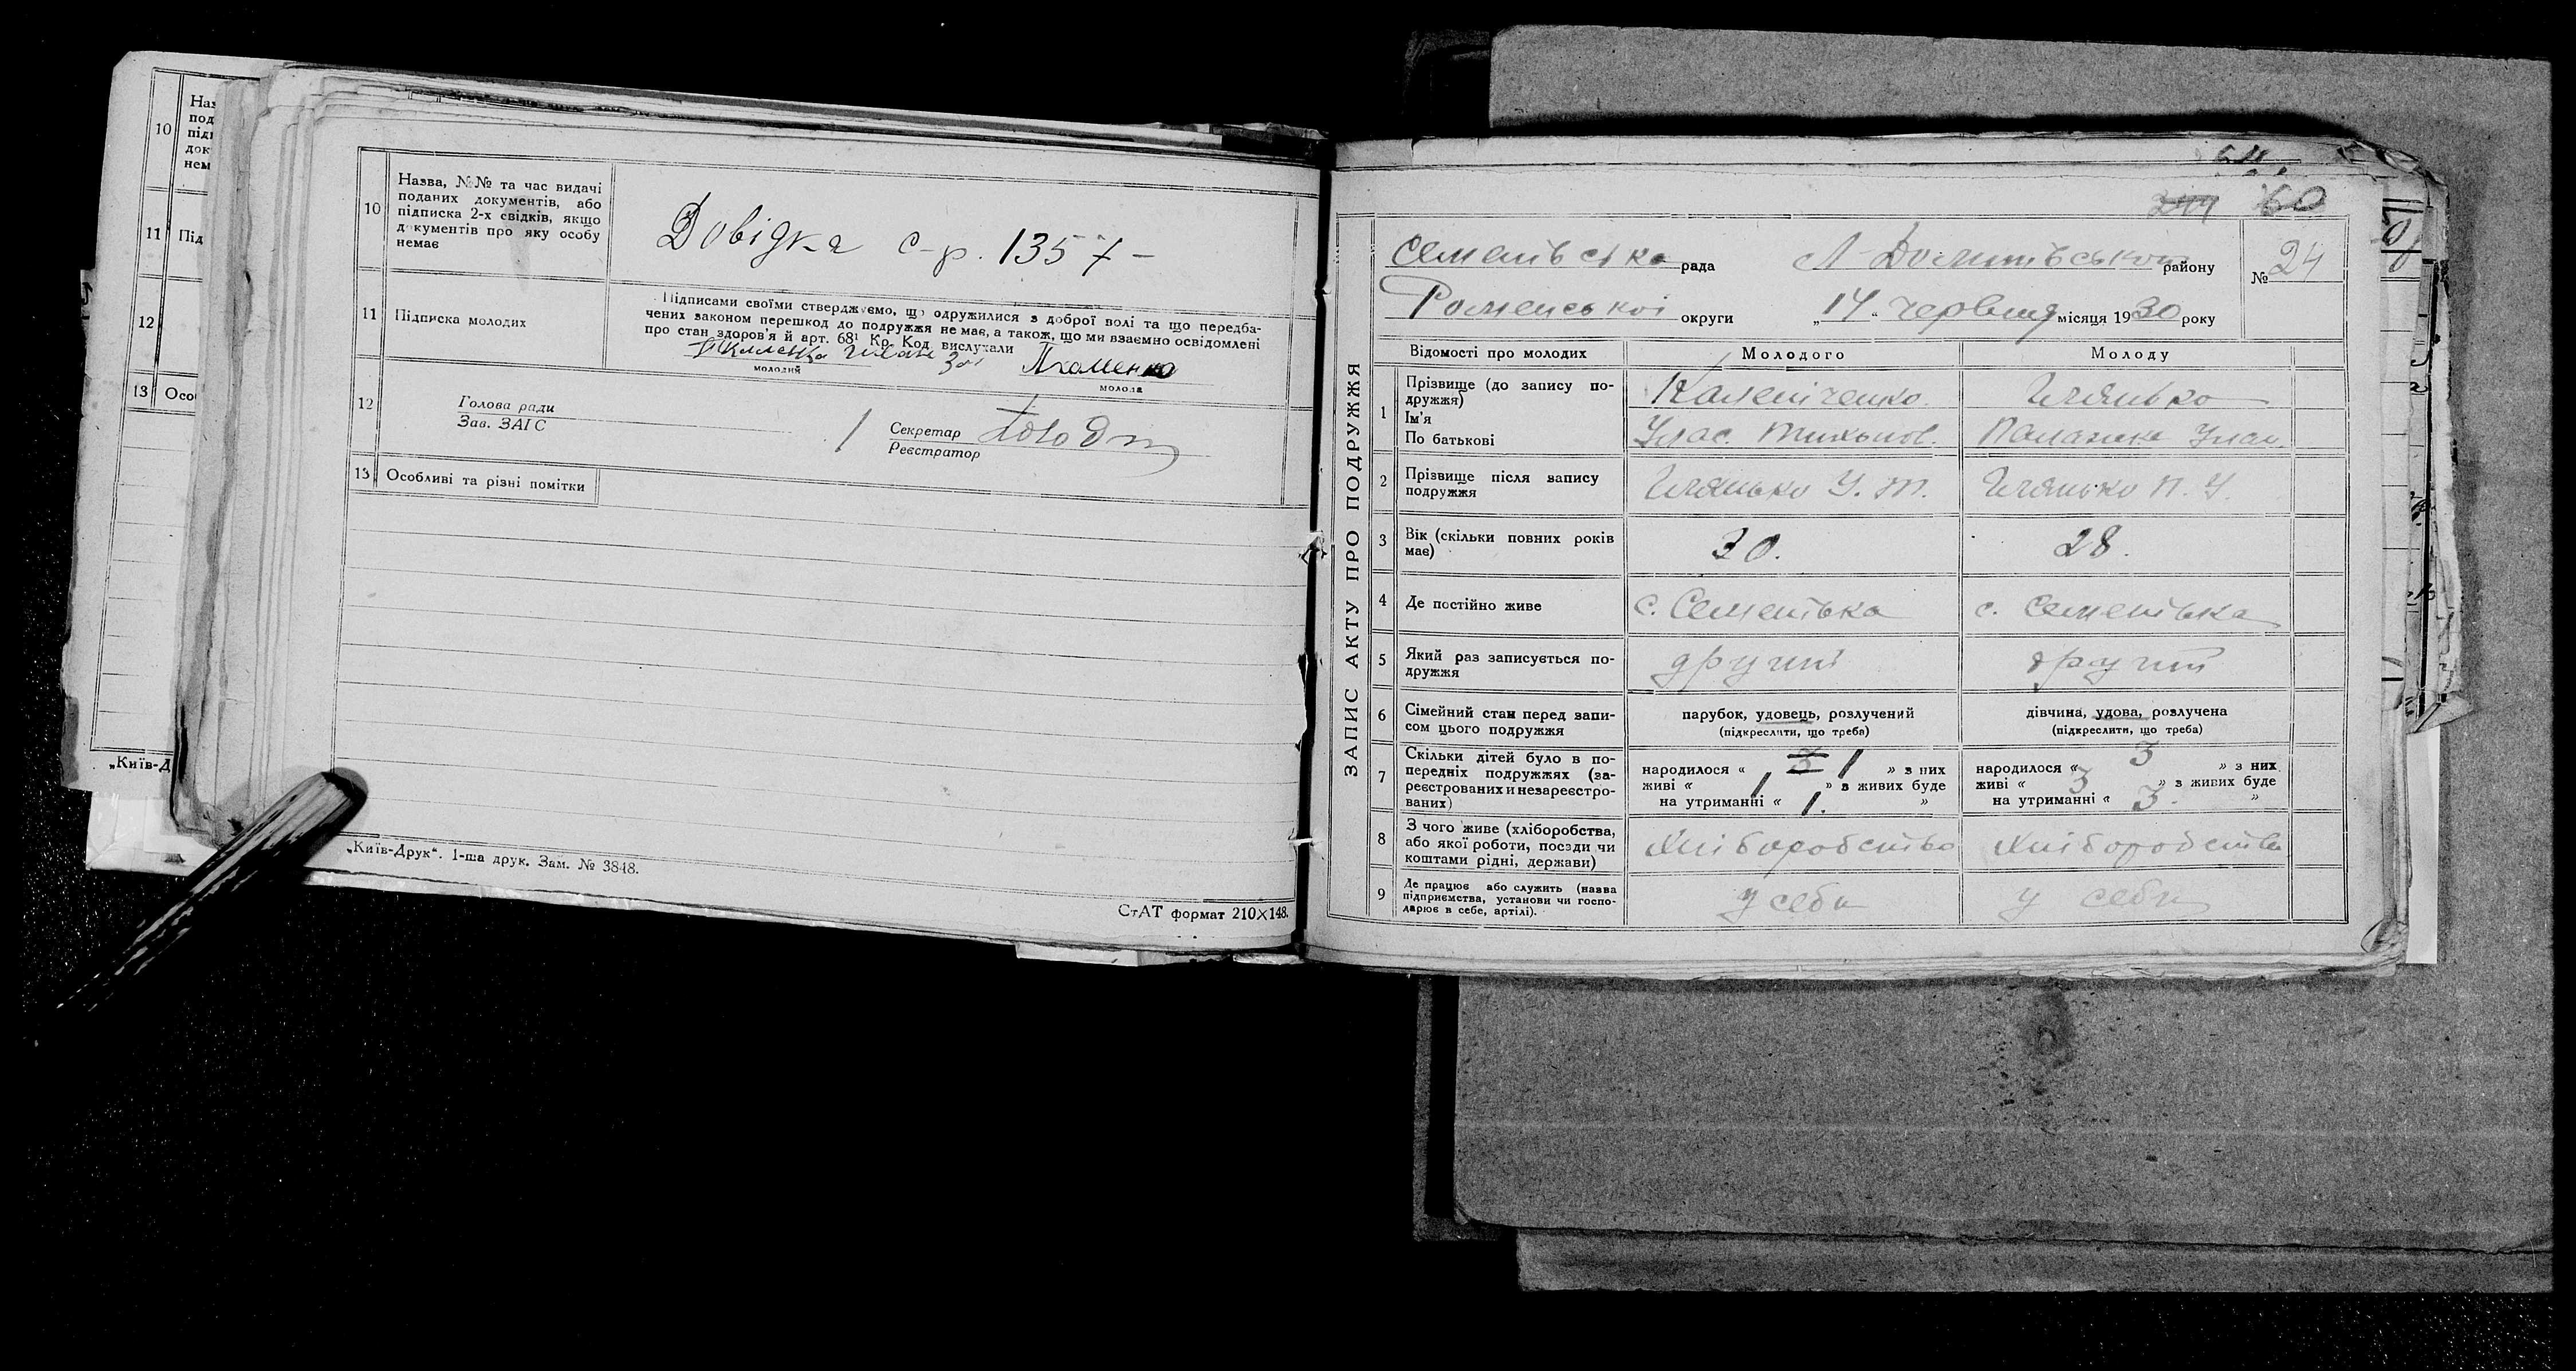 10
Наз
11
Під
12
13
Осо
„Київ-Д
10
Назва, №№ та час видачі
поданих документів, або
підписка 2-х свідків, якщо
документів про яку особу
немає
Довідка с-р. 1357 –
11
Підписка молодих
Підписами своїми стверджуємо, що одружилися з доброї волі та що передба-
чених законом перешкод до подружжя немає, а також, що ми взаємно освідомлені
про стан здоров'я й арт. 68¹ Кр. Код. вислухали
молодий
Пхоменко
молода
12
Голова ради
Зав. ЗАГС
Секретар
Реєстратор
13
Особливі та різні помітки
„Київ-Друк“. 1-ша друк. Зам. № 3848.
СтАТ формат 210×148.
60
ЗАПИС АКТУ ПРО ПОДРУЖЖЯ
Семенівська рада
району
№ 24
Роменської округи
„14“ червня місяця 1930 року
Відомості про молодих
Молодого
Молоду
1
Прізвище (до запису по-
дружжя)
Ім'я
По батькові
Калениченко
Ілляшко
Улас. Тихонов.
Палажка Улас.
2
Прізвище після запису
подружжя
Ілляшко У. Т.
Ілляшко П. У.
3
Вік (скільки повних років
має)
30.
28.
4
Де постійно живе
с. Семенівка
с. Семенівка
5
Який раз записується по-
дружжя
другий
другий
6
Сімейний стан перед запи-
сом цього подружжя
парубок, удовець, розлучений
(підкреслити, що треба)
дівчина, удова, розлучена
(підкреслити, що треба)
7
Скільки дітей було в по-
передніх подружжях (за-
реєстрованих и незареєстро-
ваних)
народилося « 3 1 » з них
живі « 1 » з живих буде
на утриманні « 1. »
народилося « 3 » з них
живі « 3 » з живих буде
на утриманні « 3. »
8
З чого живе (хліборобства,
або якої роботи, посади чи
коштами рідні, держави)
Хліборобство
Хліборобства
9
Де працює або служить (назва
підприємства, установи чи госпо-
дарює в себе, артілі).
у себе
у себе